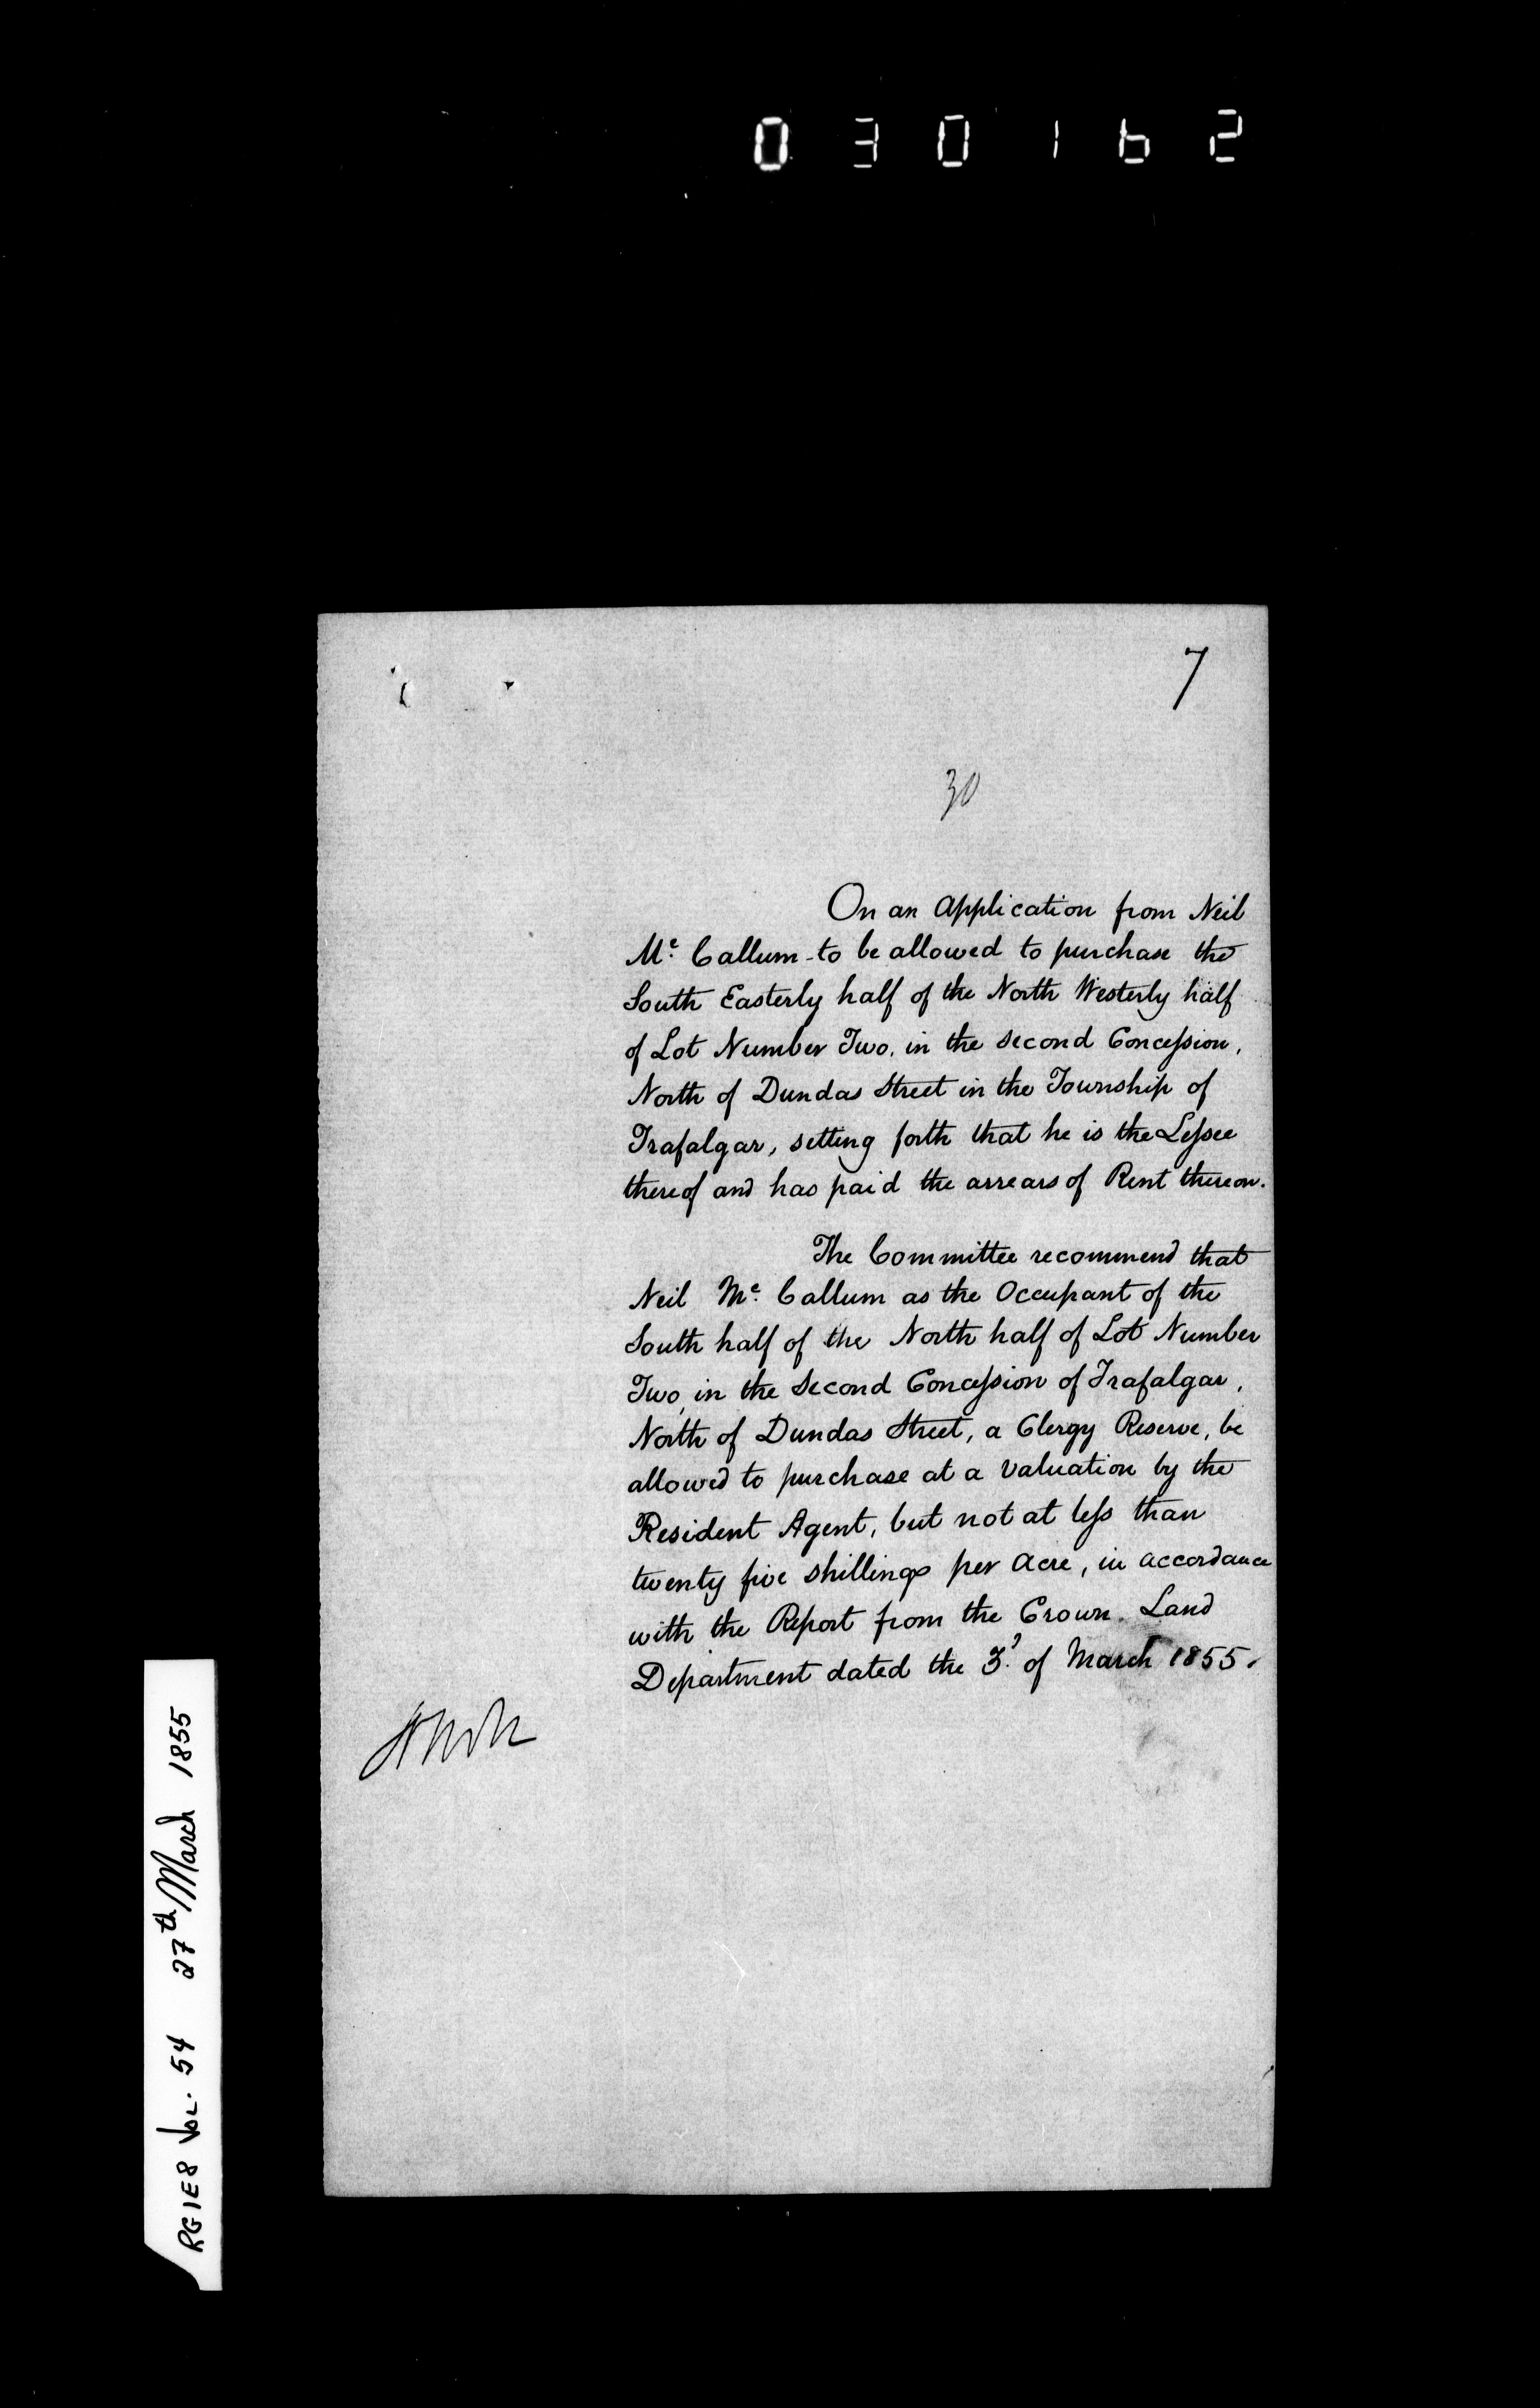 030162
7
30
On an Application from Neil
Mc. Callum to be allowed to purchase the
South Easterly half of the North Westerly half
of Lot Number Two, in the second Concession,
North of Dundas Street in the Township of
Trafalgar, setting forth that he is the Lessee
thereof and has paid the arrears of Rent thereon.
The Committee recommend that
Neil Mc. Callum as the Occupant of the
South half of the North half of Lot Number
Two, in the Second Concession of Trafalgar,
North of Dundas Street, a Clergy Reserve, be
allowed to purchase at a valuation by the
Resident Agent, but not at less than
twenty five shillings per Acre, in accordance
with the Report from the Crown Land
Department dated the 3d. of March 1855.
RG1E8 Vol. 54 27th March 1855